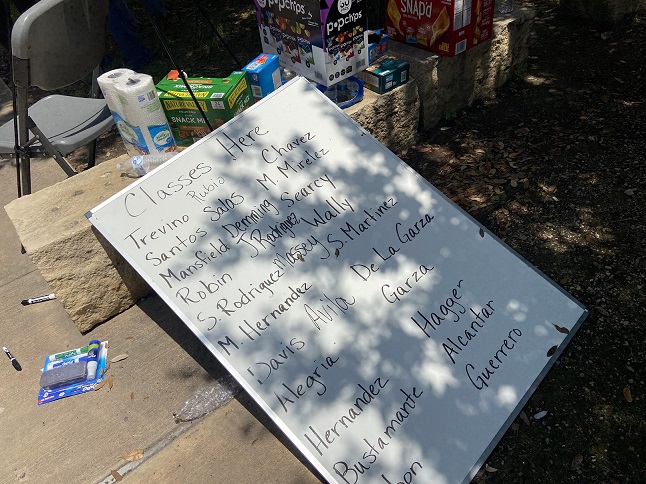 popchips
SNAP'D
SNACK MIX
Classes Here
Trevino Rubio Chavez
Santos Salas M. Mireles
Mansfield Demning Searcy
Robin J Rodriguez Wally
S. Rodriguez Massey J S. Martinez
M. Hernandez
Davis Avila De La Garza
Alegria Garza
Hernandez Hagger
Bustamante Alcantar
Guerrero